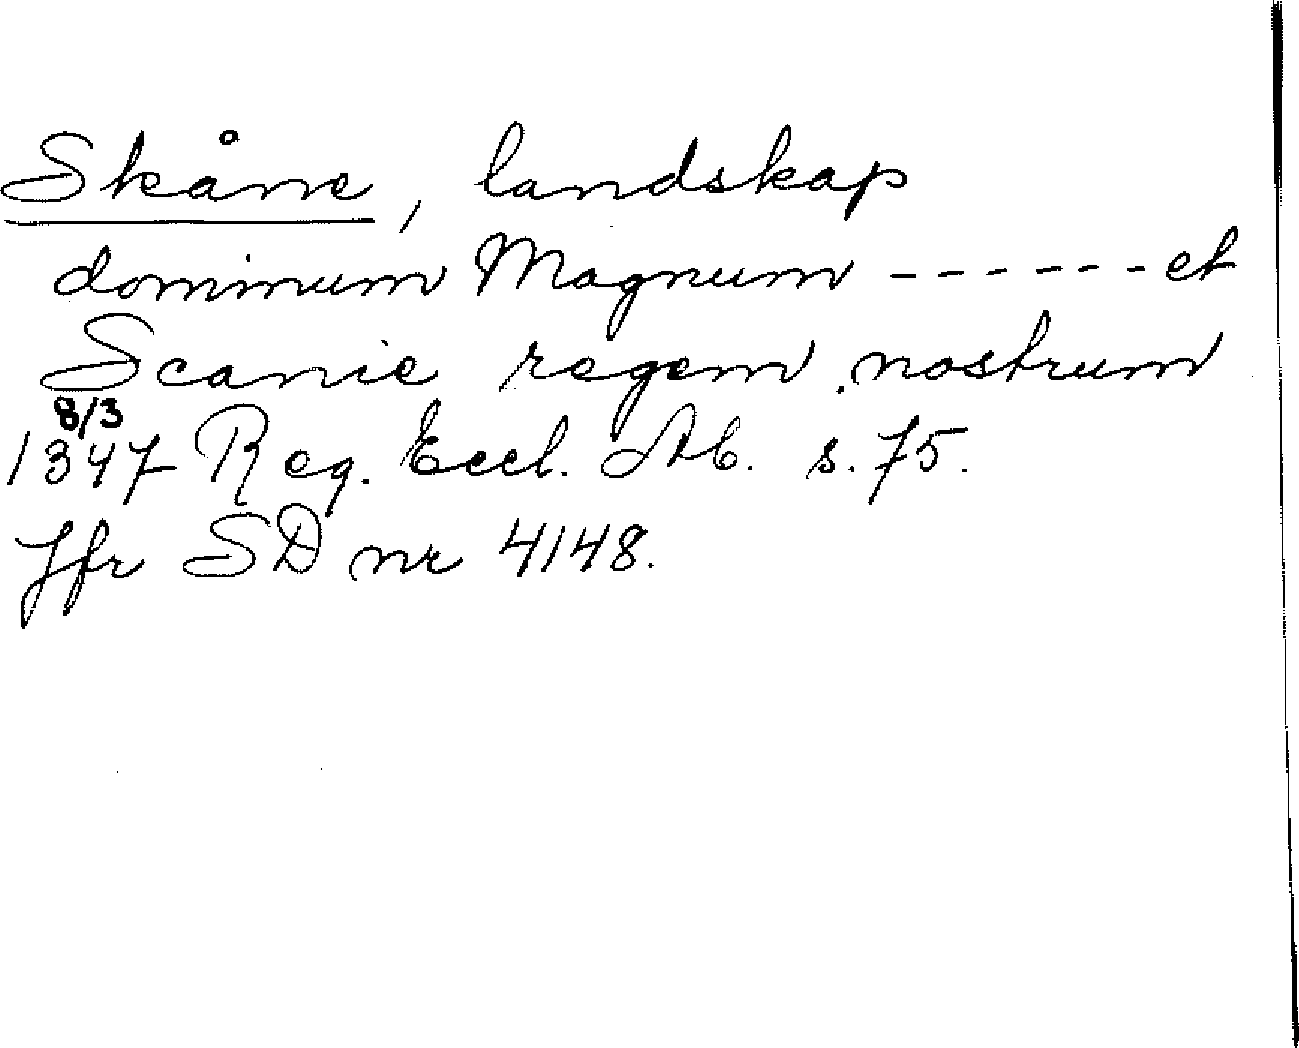 Skåne, landskap
dominum Magnum ------ et
Scanie regem nostrum
8/3
1347 Reg. Eccl. Ab. s. 75.
Jfr SD nr 4148.